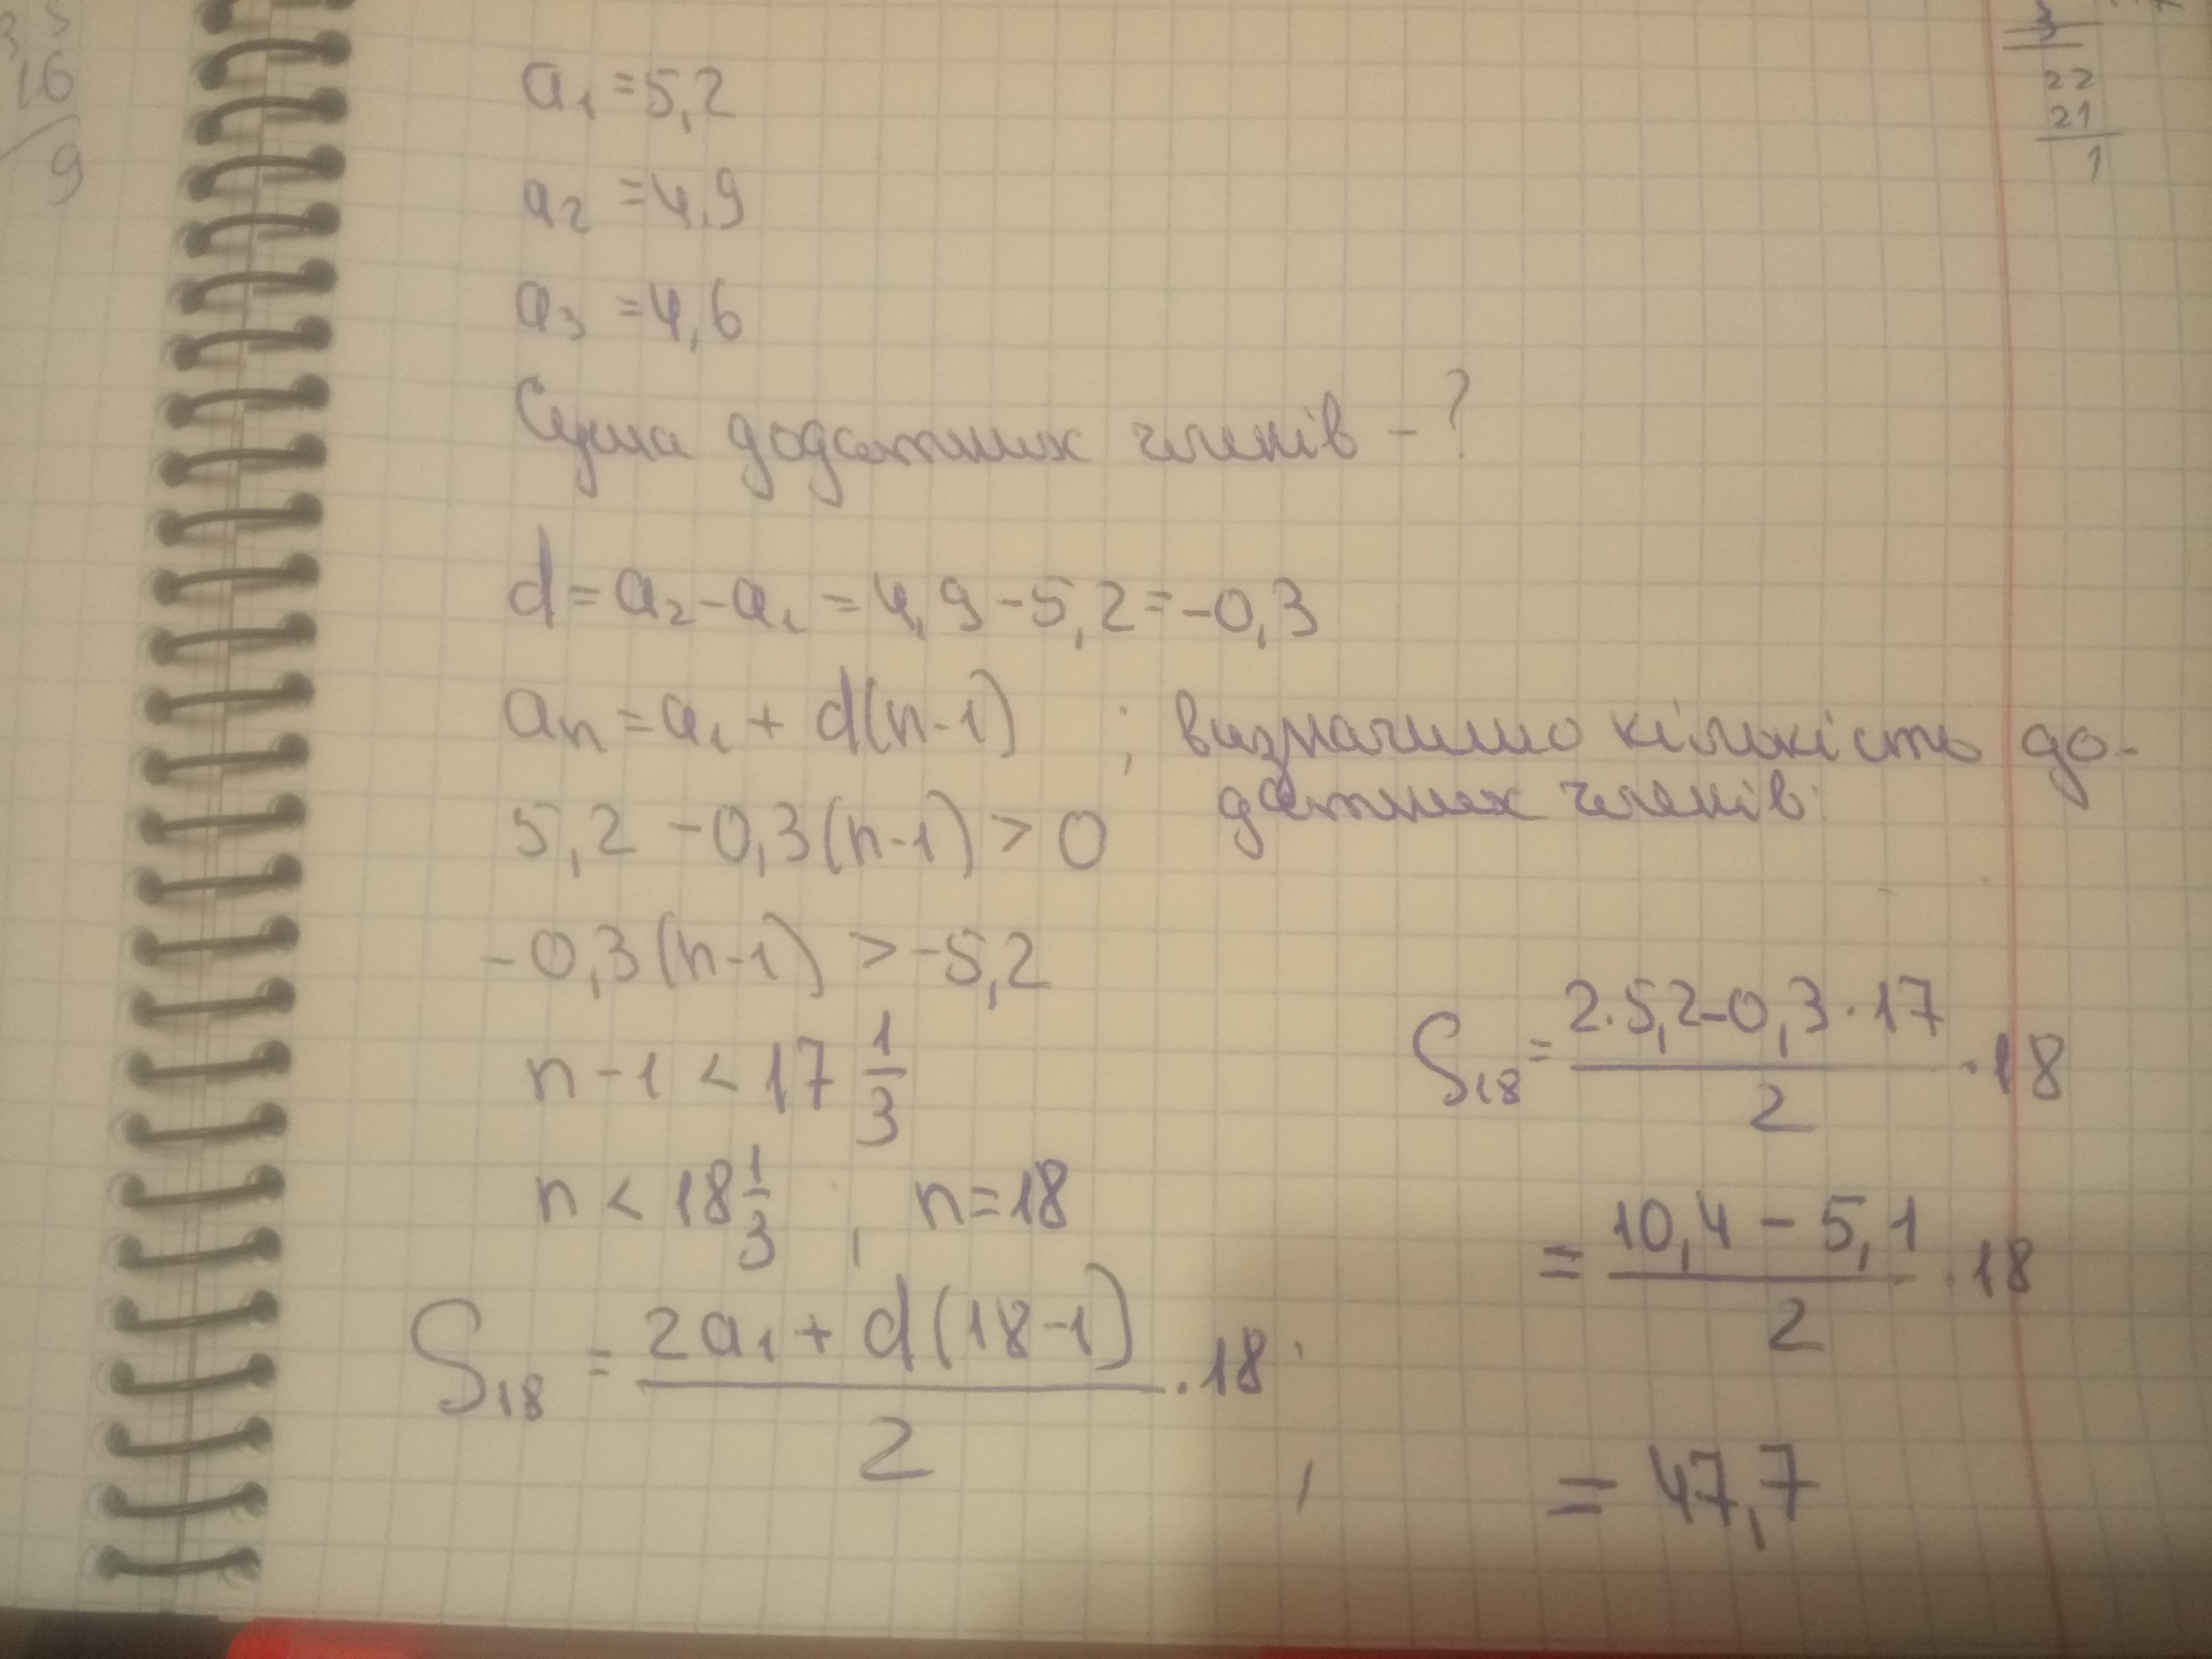 16
9
3
22
21
1
a₁ = 5,2
a₂ = 4,9
a₃ = 4,6
Сума додатних членів - ?
d = a₂ - a₁ = 4,9 - 5,2 = -0,3
aₙ = a₁ + d(n-1) ; визначимо кількість до-
датних членів:
5,2 - 0,3(n-1) > 0
-0,3(n-1) > -5,2
n - 1 < 17 1/3
n < 18 1/3 , n = 18
S₁₈ = (2a₁ + d(18-1))/2 · 18 ;
S₁₈ = (2·5,2 - 0,3·17)/2 · 18
= (10,4 - 5,1)/2 · 18
= 47,7